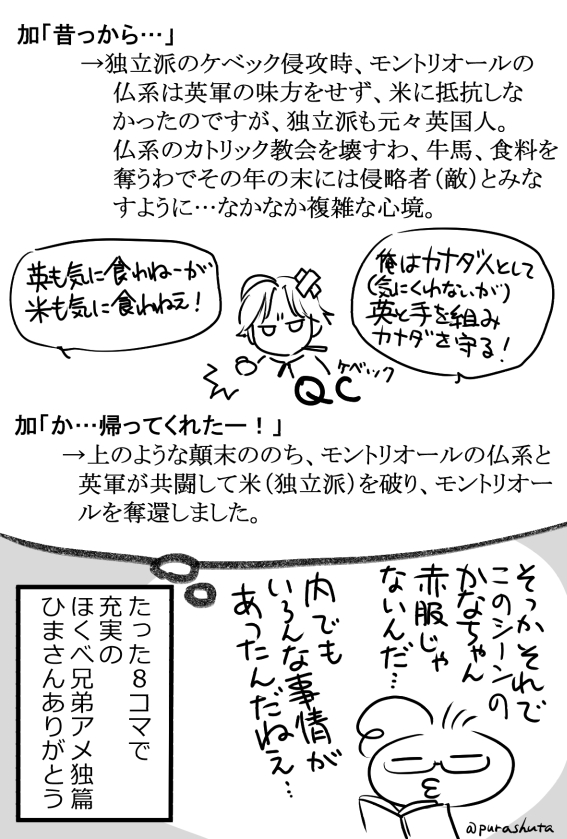 加「昔っから…」
→独立派のケベック侵攻時、モントリオールの
仏系は英軍の味方をせず、米に抵抗しな
かったのですが、独立派も元々英国人。
仏系のカトリック教会を壊すわ、牛馬、食料を
奪うわでその年の末には侵略者（敵）とみな
すように…なかなか複雑な心境。
英も気に食わねーが
米も気に食わねえ！
俺はカナダ人として
（気にくわないが）
英と手を組み
カナダを守る！
ケベック
QC
加「か…帰ってくれたー！」
→上のような顛末ののち、モントリオールの仏系と
英軍が共闘して米（独立派）を破り、モントリオー
ルを奪還しました。
そっかそれで
このシーンの
かなちゃん
赤服じゃ
ないんだ…
内でも
いろんな事情が
あったんだねえ…
たった８コマで
充実の
ほくべ兄弟アメ独篇
ひまさんありがとう
@purashuta